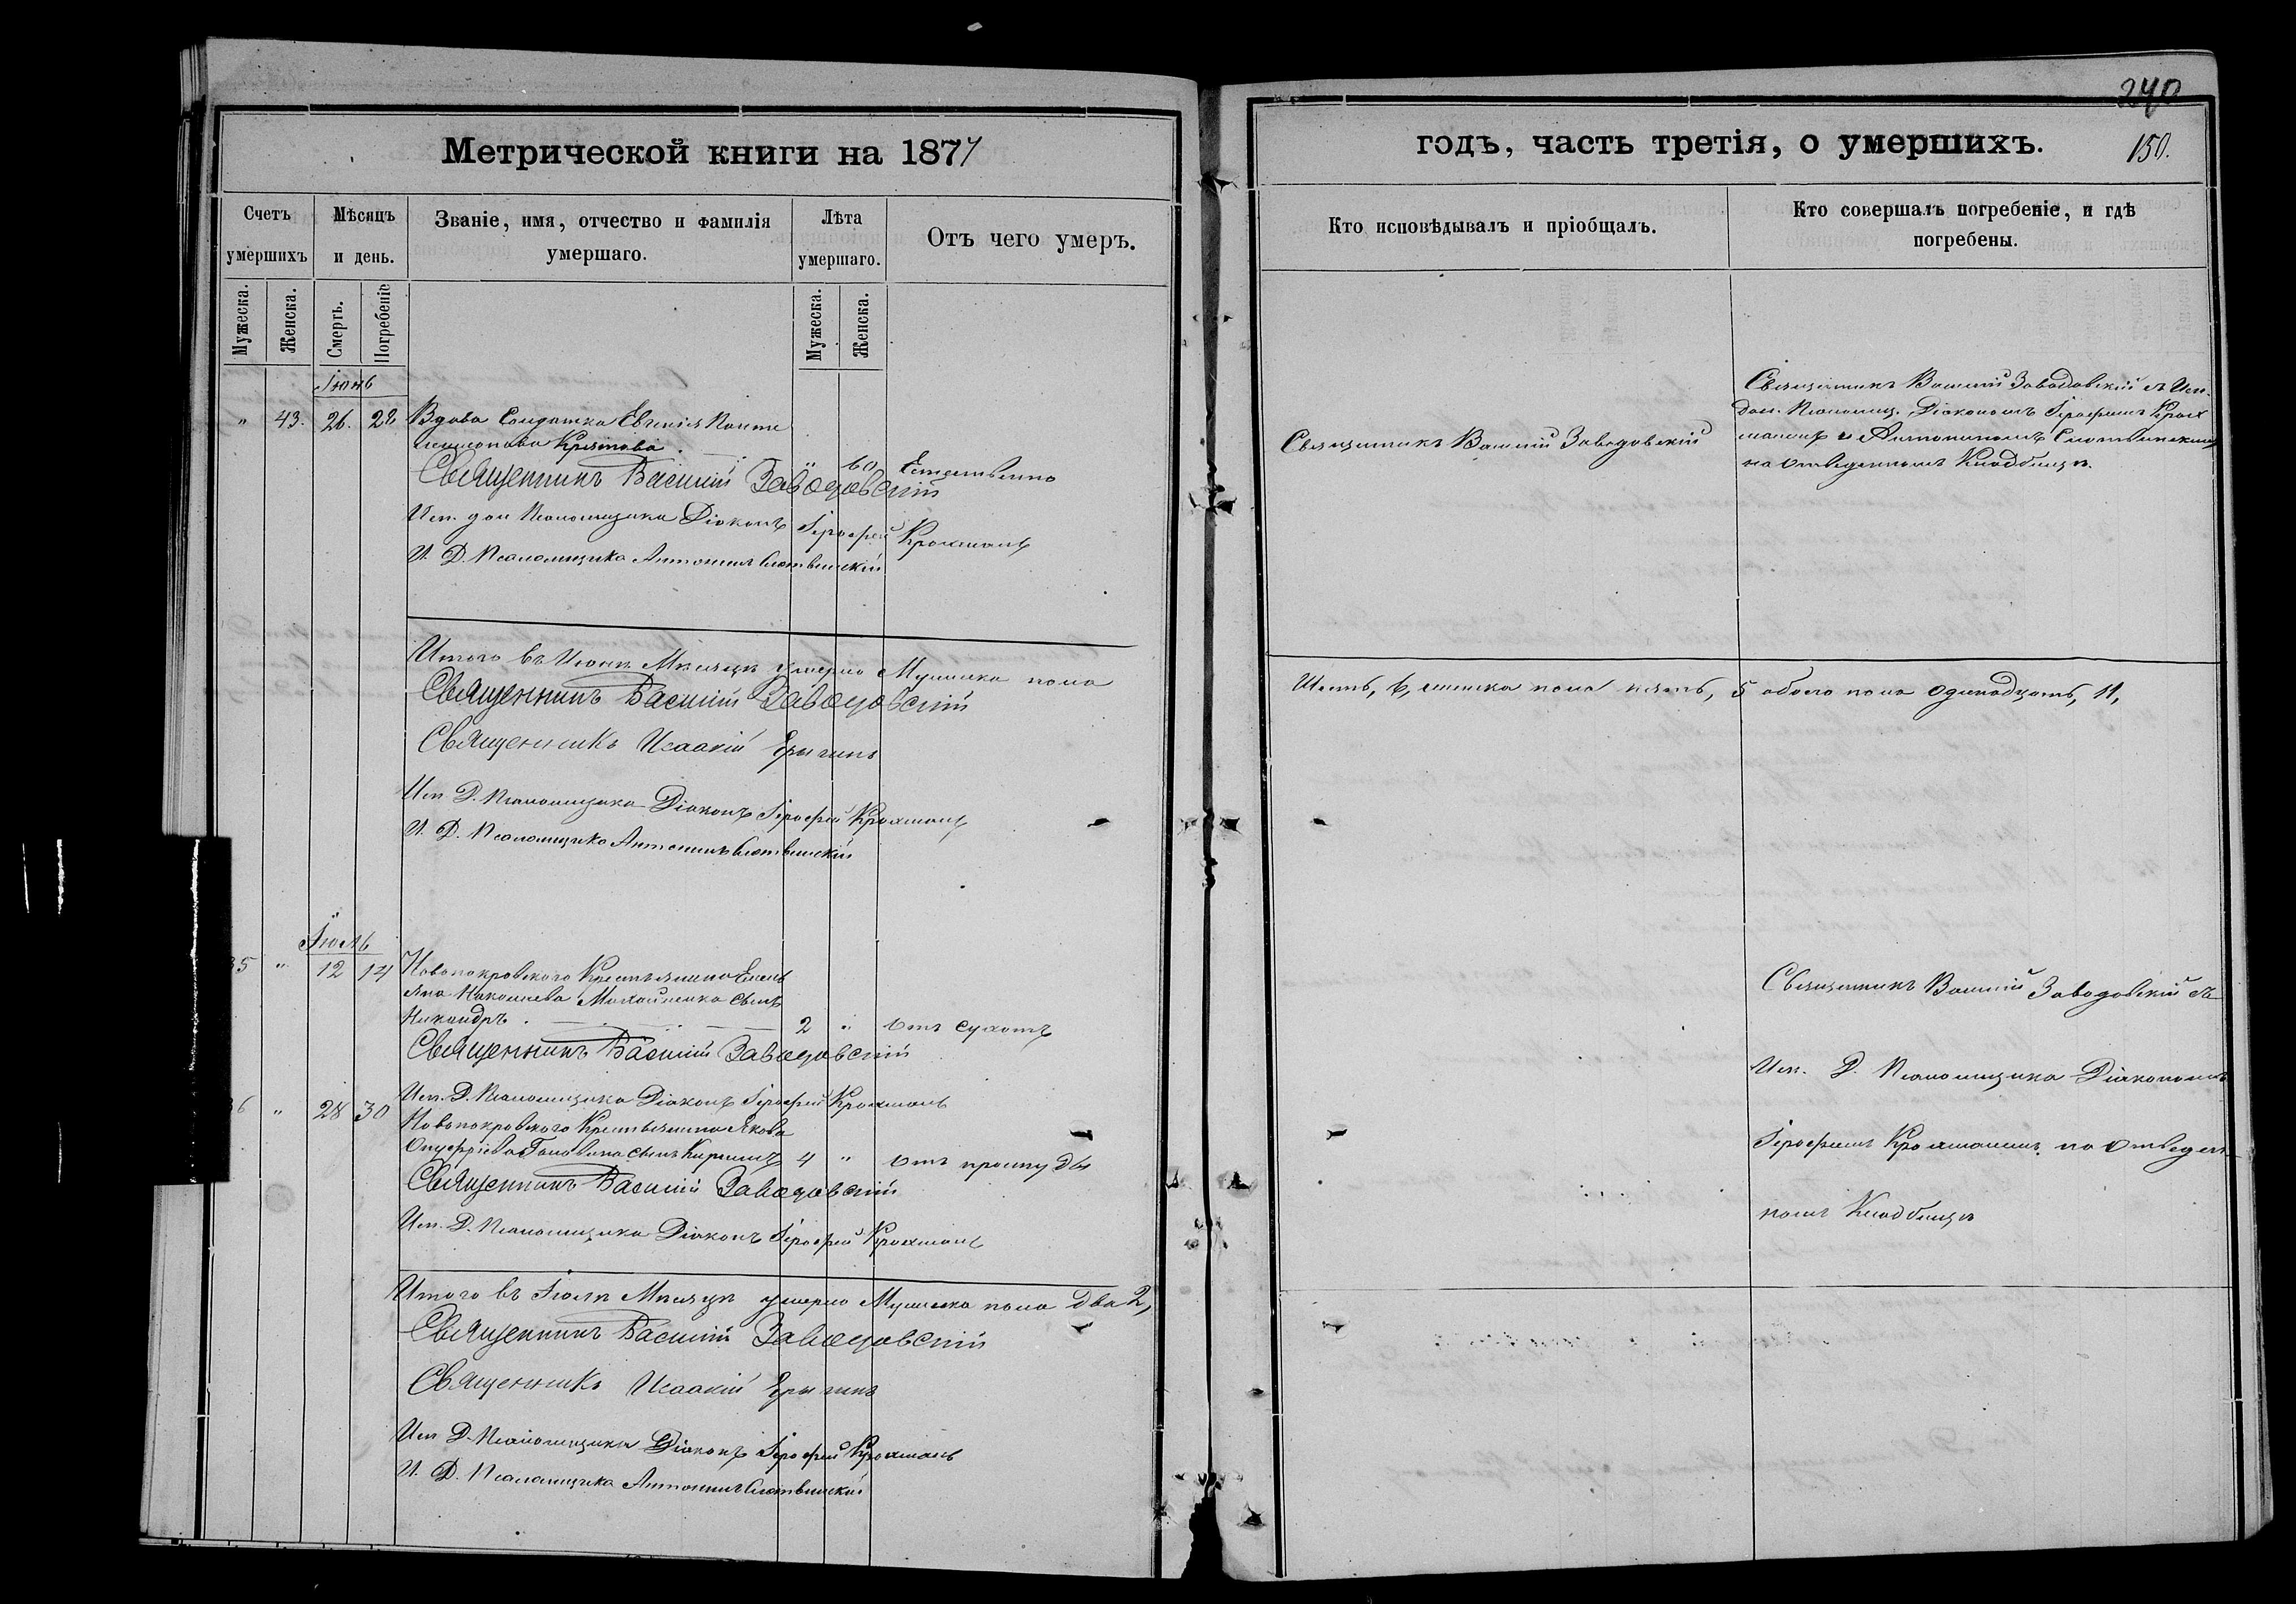 240
Метрической книги на 1877
годъ, часть третія, о умершихъ.
150.
Счетъ умершихъ
Мѣсяцъ и день.
Званіе, имя, отчество и фамилія умершаго.
Лѣта умершаго.
Отъ чего умеръ.
Кто исповѣдывалъ и пріобщалъ.
Кто совершалъ погребеніе, и гдѣ погребены.
Мужеска.
Женска.
Смерть.
Погребеніе
Мужеска.
Женска.
Іюнь
" 43. 26. 28 Вдова Солдатка Евгенія Панте
леимонова
" 60 Естественно
Священникъ Василій Заводовскій
Исп. дол Псаломщика Діаконъ Іерофей Крохмаль
И. Д. Псаломщика Антонинъ Слотвинскій
Священникъ Василій Заводовскій
Священникъ Василій Заводовскій съ Исп.
дол. Псаломщ. Діакономъ Іерофеемъ Крох
малемъ и Антониномъ Слотвинскимъ
на отведенномъ Кладбищѣ.
Итого въ Июнѣ Мѣсяцѣ умерло Мужеска пола
Шесть, 6, женска пола пять, 5 обоего пола одинадцать, 11,
Священникъ Василій Заводовскій
Священникъ Исаакій
Исп Д. Псаломщика Діаконъ Іерофей Крохмаль
И. Д. Псаломщика Антонинъ Слотвинскій
Іюль
35 " 12 14 Новопокровского Крестьянина Емель
яна Николаева сынъ
Никандръ. 2 " отъ сухотъ
Священникъ Василій Заводовскій
Исп. Д. Псаломщика Діаконъ Іерофей Крохмаль
36 " 28 30 Новопокровского Крестьянина Якова
Онуфріева Головина сынъ Кириллъ 4 " отъ простуды
Священникъ Василій Заводовскій
Исп. Д. Псаломщика Діаконъ Іерофей Крохмаль
Священникъ Василій Заводовскій съ
Исп. Д. Псаломщика Діакономъ
Іерофеемъ Крохмалемъ на отведен
номъ Кладбищѣ
Итого въ Іюлѣ Мѣсяцѣ умерло Мужеска пола два 2,
Священникъ Василій Заводовскій
Священникъ Исаакій
Исп Д. Псаломщика Діаконъ Іерофей Крохмаль
И. Д. Псаломщика Антонинъ Слотвинскій